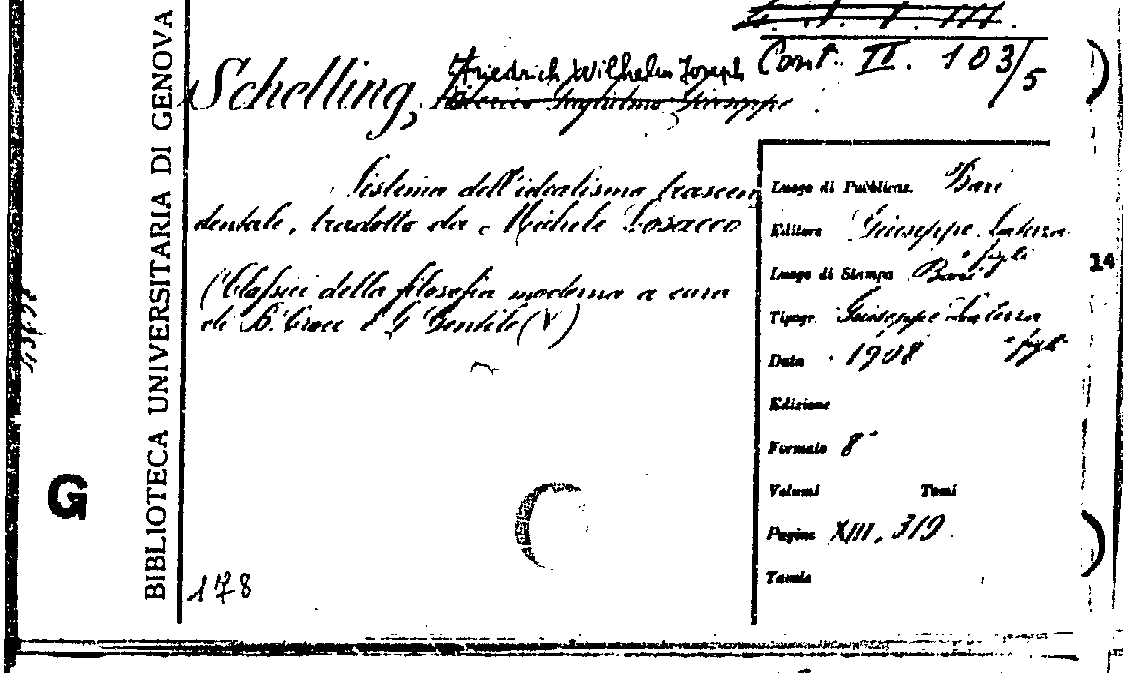 BIBLIOTECA UNIVERSITARIA DI GENOVA
Cont. II. 103/5
Friedrich Wilhelm Joseph
Schelling, Federico Guglielmo Giuseppe
Sistema dell'idealismo trascen
dentale, tradotto da Michele Losacco
(Classici della filosofia moderna a cura
di B. Croce e G Gentile (V)
Luogo di Pubblicaz. Bari
Editore Giuseppe Laterza
e figli
Luogo di Stampa Bari
Tipogr. Giuseppe Laterza
e figli
Data 1908
Edizione
Formato 8°
Volumi Tomi
Pagine XIII, 319
Tavole
14
G
178